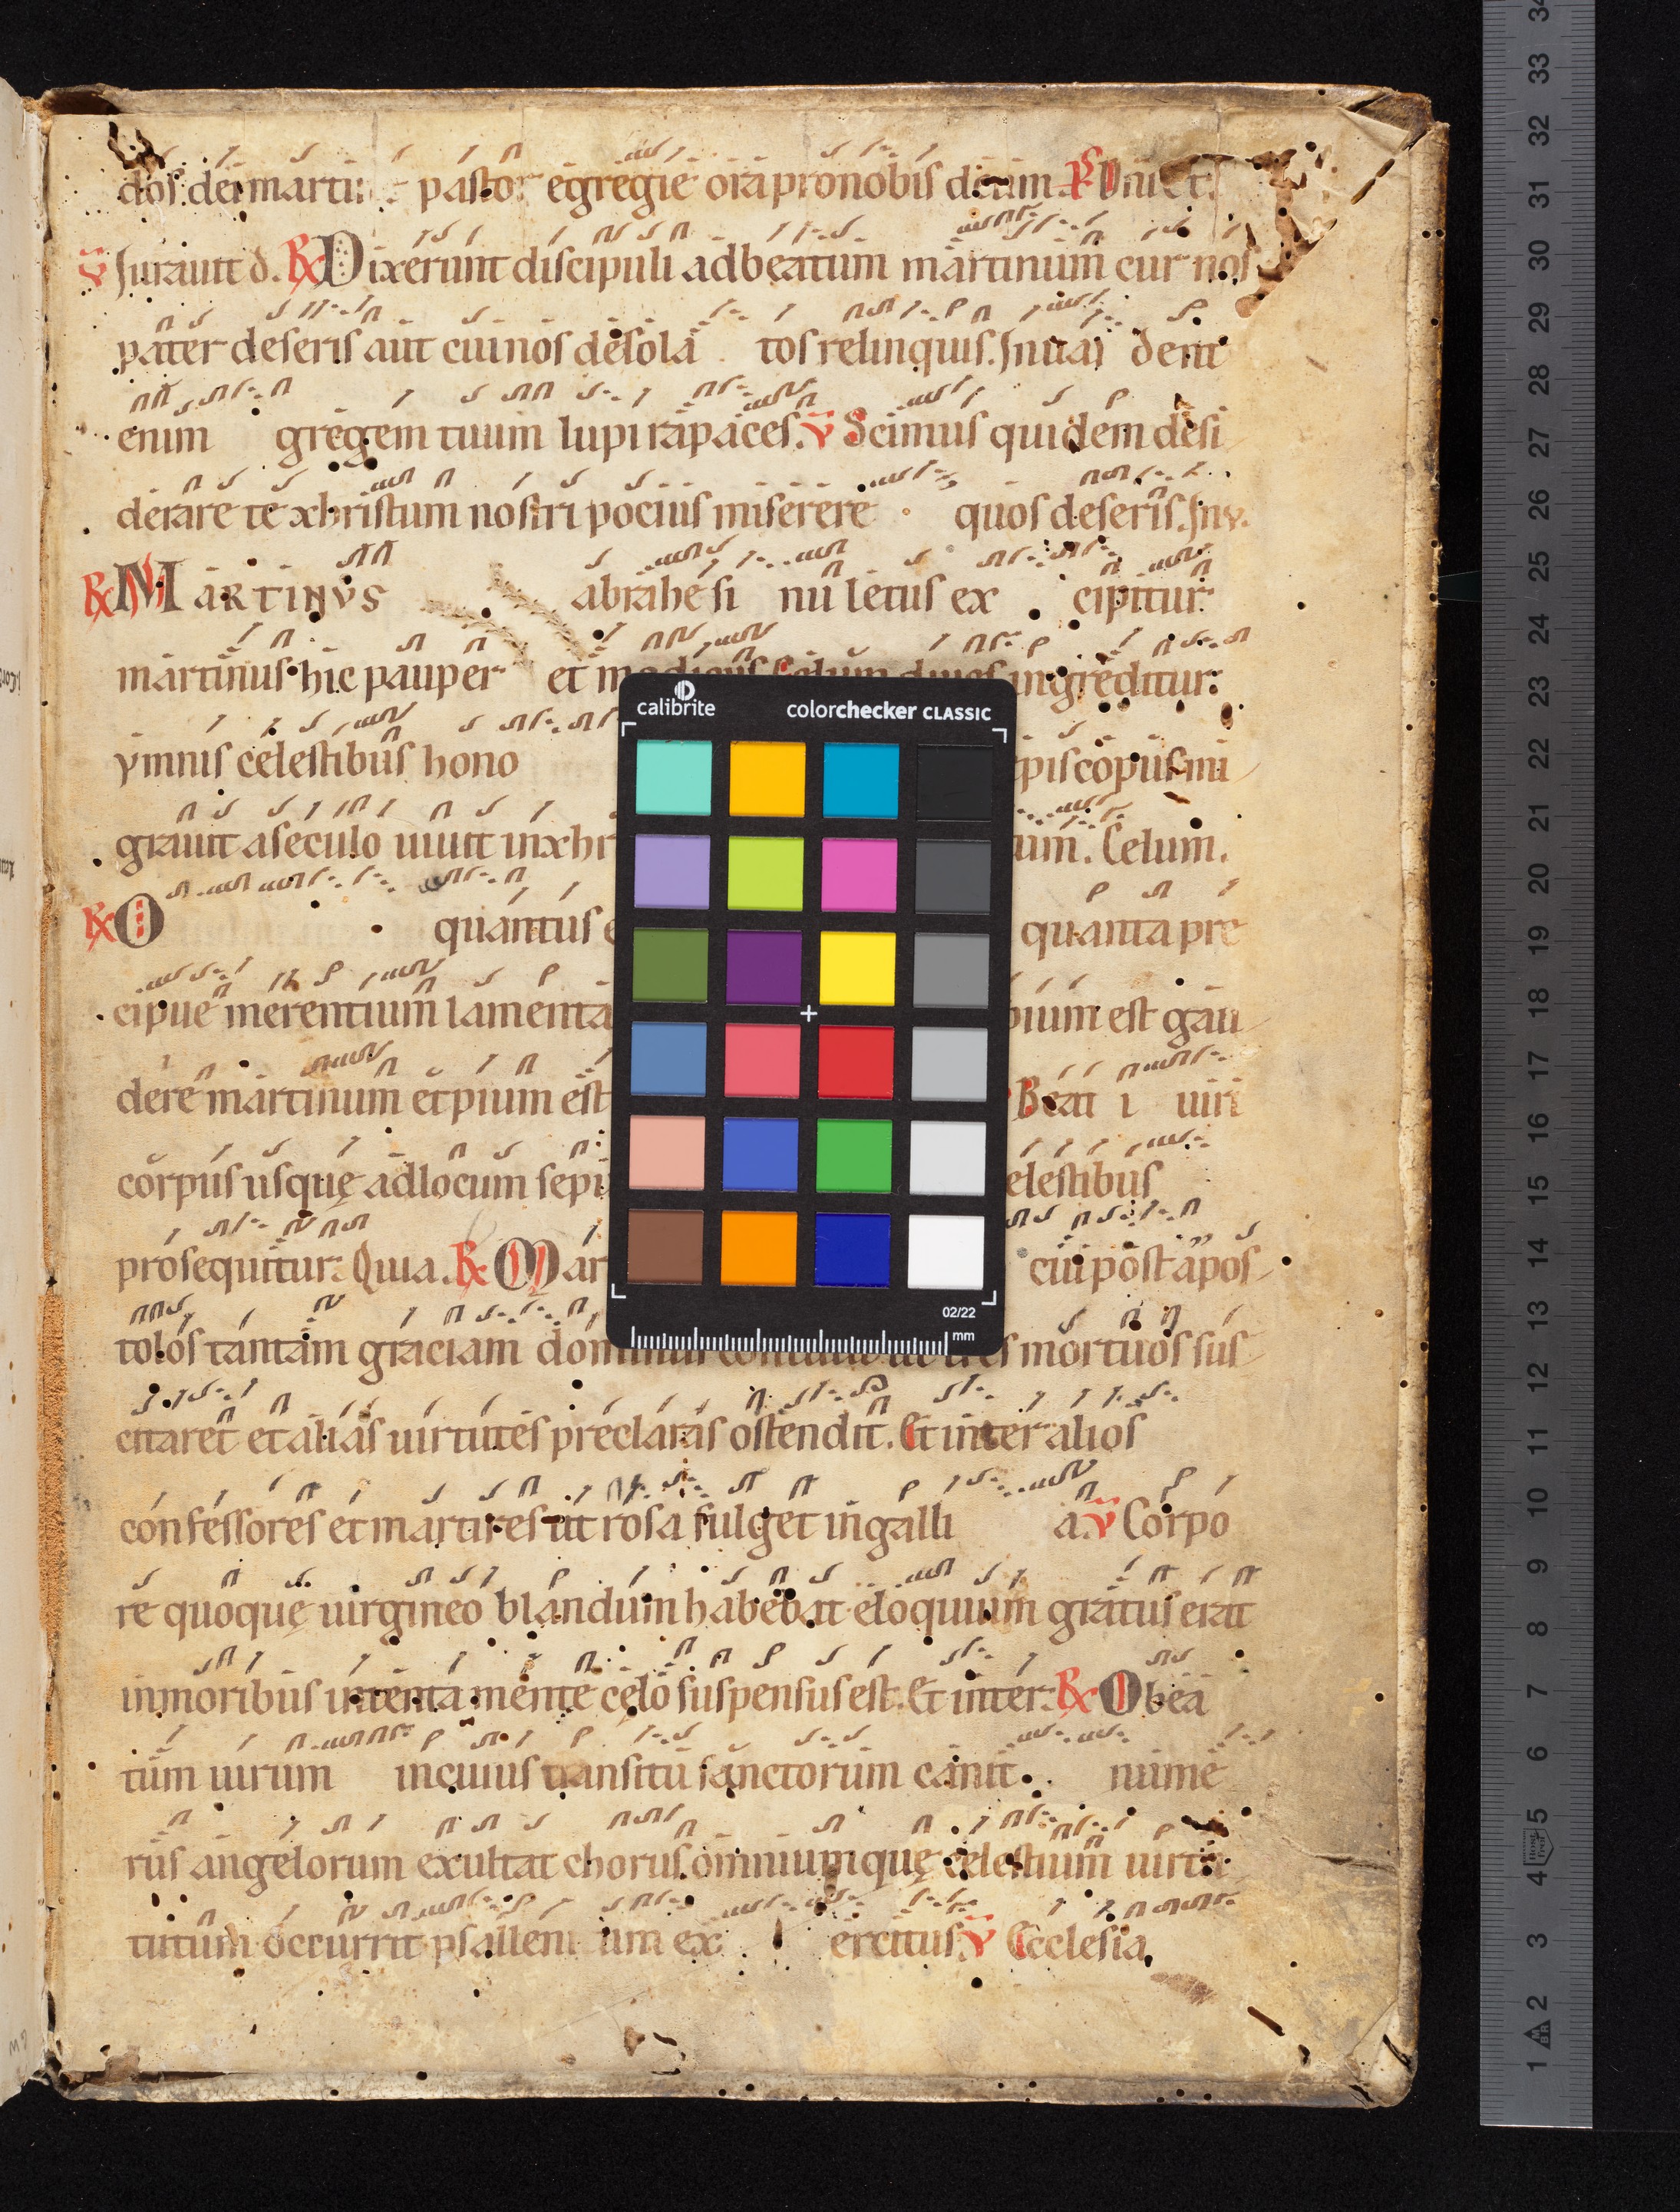 dos dei martin pastor egregie ora pro nobis deum.
℣ Iurauit d. ℟ Dixerunt discipuli adbeatum martinum cur nos
pater deseris aut cui nos desola tos relinquis. Inua dent
enim gregem tuum lupi rapaces. ℣ Scimus quidem desi
derare te xhristum nostri pocius miserere quos deseris. Inv.
℟ MARTINVS abrahe si nu letus ex cipitur
martinus hic pauper et modicus celum diues ingreditur
ymnis celestibus hono
piscopus mi
grauit aseculo uiuit inxhr
um. Celum.
℟ O quantus
quanta pre
cipue merentium lamenta
pium est gau
dere martinum et pium est
Beat i uiri
corpus usque adlocum sepu
elestibus
prosequitur. Quia. ℟ Mar
cui post apos
tolos tantam graciam dom
mortuos sus
citaret et alias uirtutes preclaras ostendit. Et inter alios
confessores et martires ut rosa fulget in galli a. ℣ Corpo
re quoque uirgineo blandum habebat eloquium gratus erat
inmoribus intenta mente celo suspensus est. Et inter. ℟ O bea
tum uirum incuius transitu sanctorum canit nume
rus angelorum exultat chorus omnium que celestium uirtu
tutum occurrit psallentium ex ercitus. ℣ Ecclesia
calibrite colorchecker CLASSIC
02/22
mm
34
33
32
31
30
29
28
27
26
25
24
23
22
21
20
19
18
17
16
15
14
13
12
11
10
9
8
7
6
5
4
3
2
1